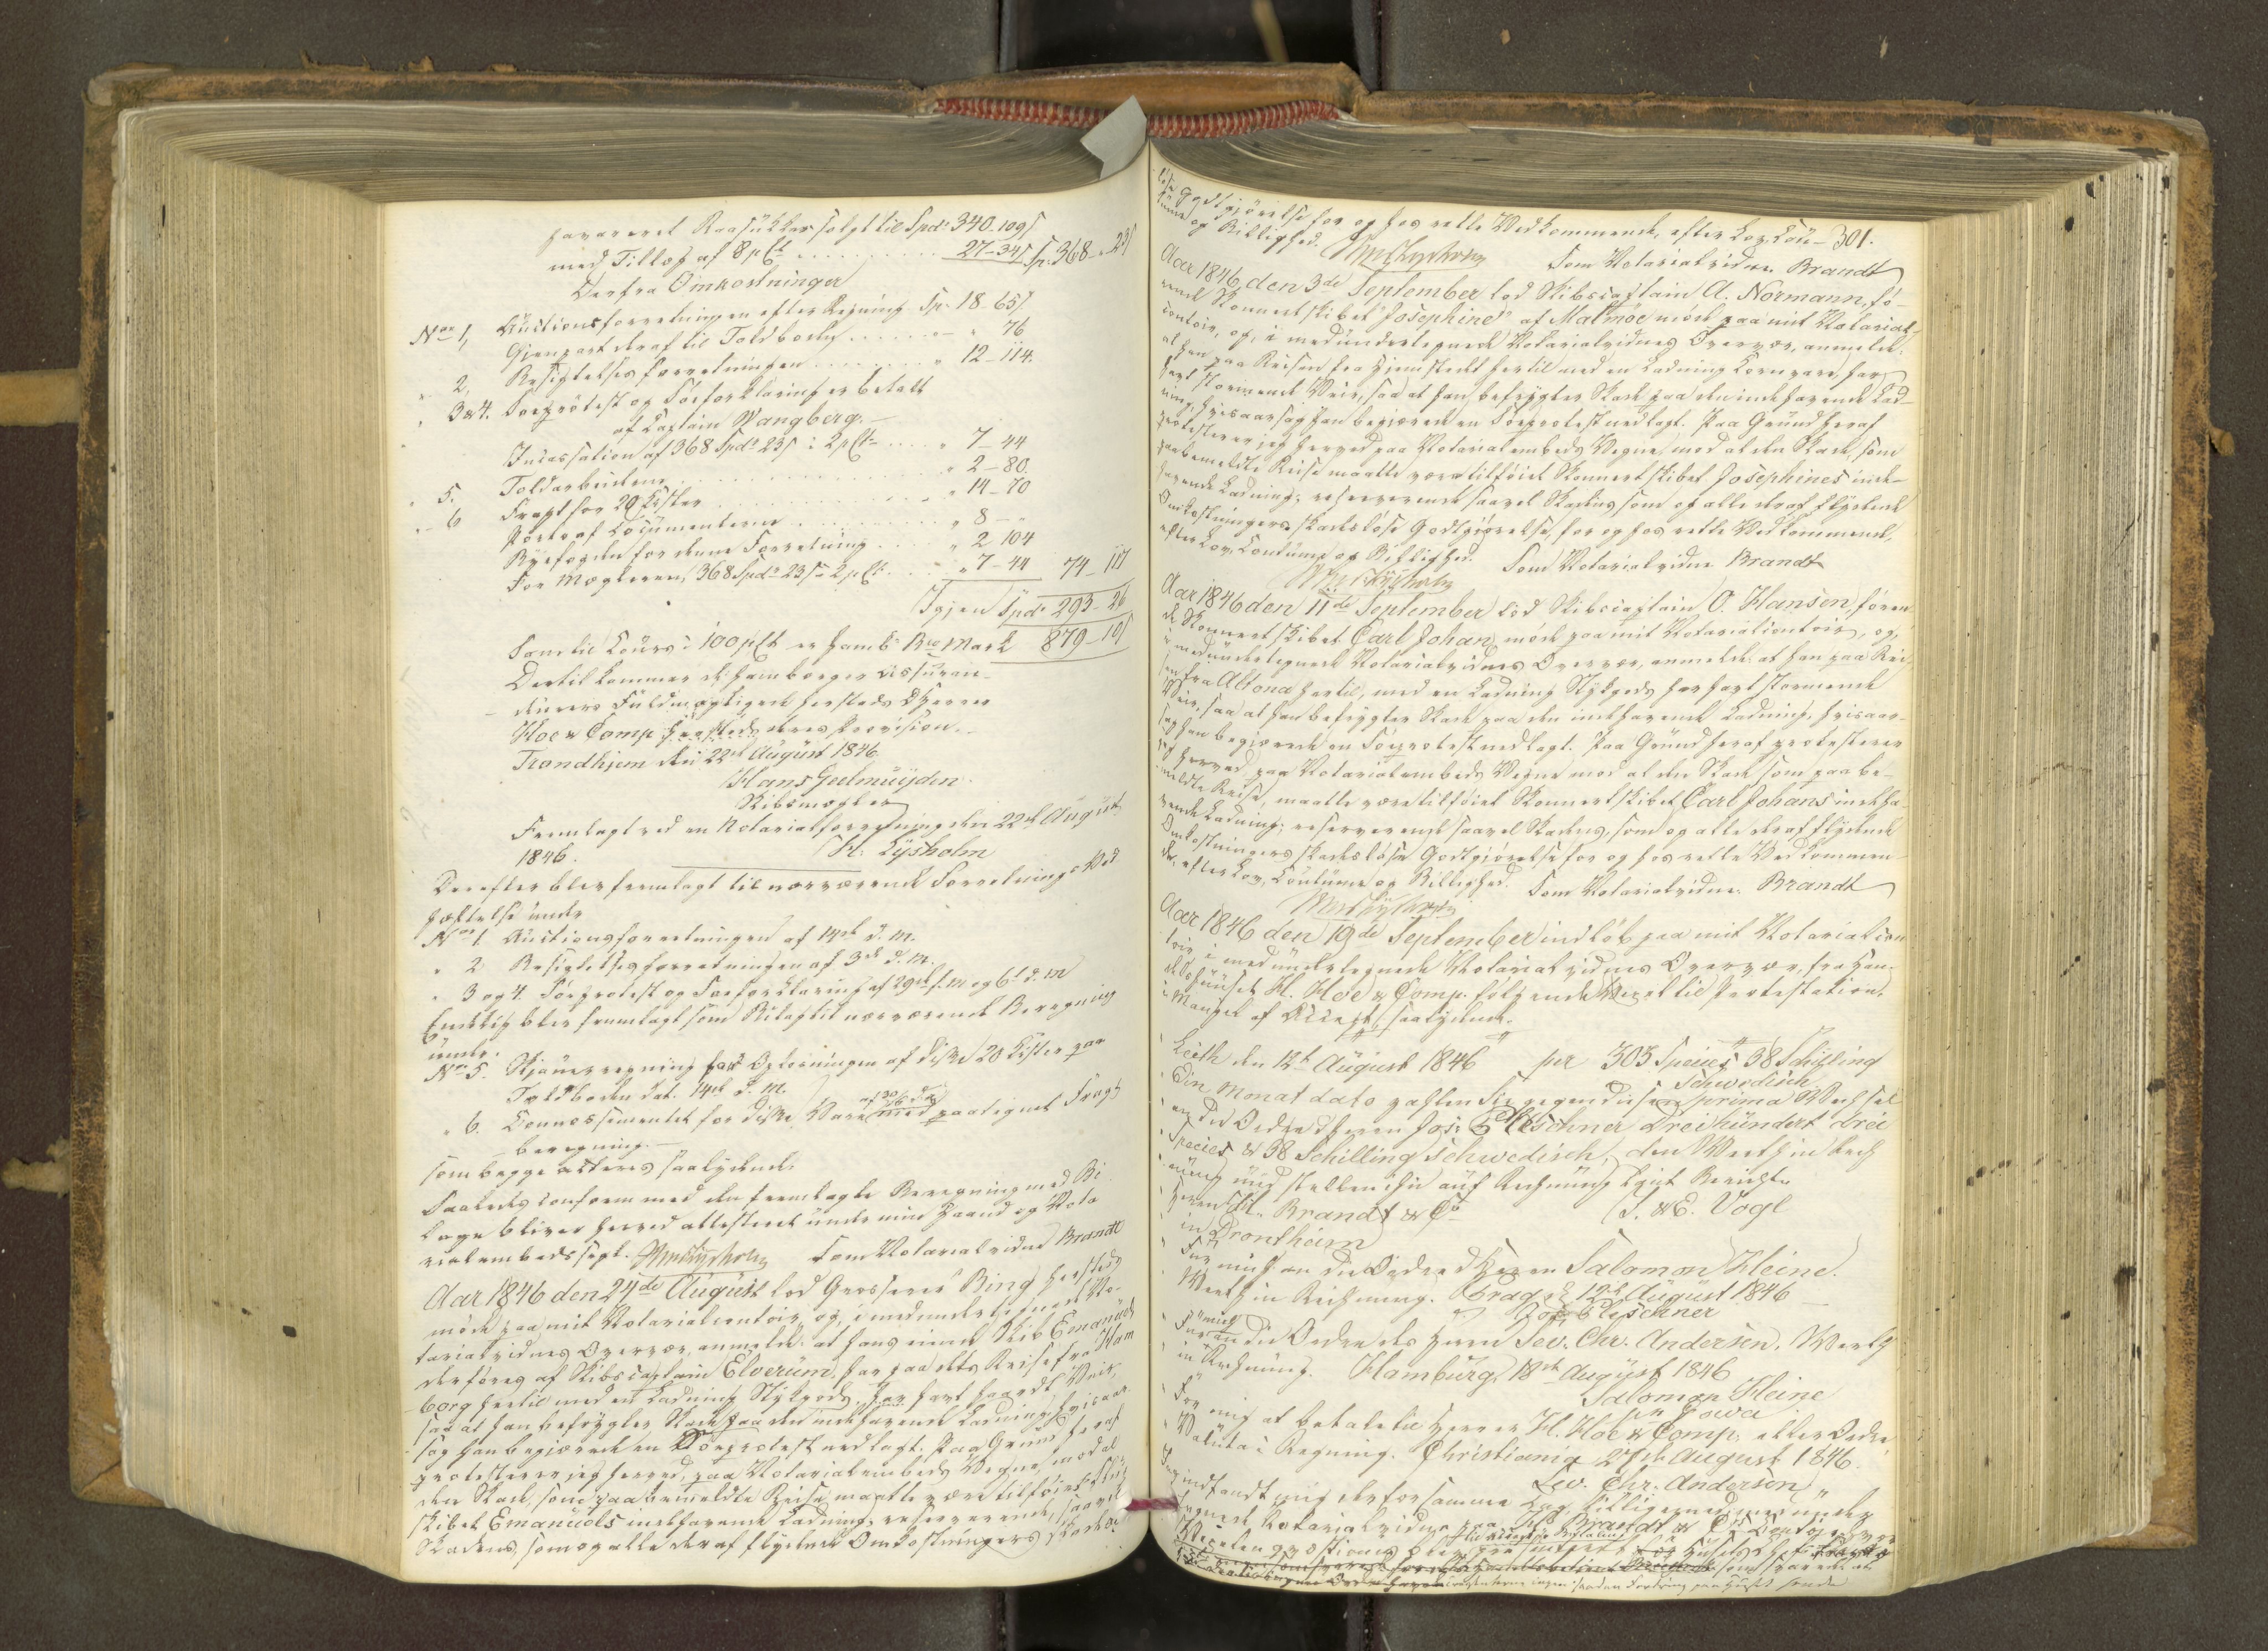 havareret Raasukker solgt til Spd. 340. 109 s
med Tillæg af 8 p Ct. . . . . . . . . . 27 - 34 s Sp. 368 - 23 s
Derfra Omkostninger
No. 1, Auctionsforretningen efter Regning Sp. 18 - 65 s
Gjenpart deraf til Toldboden . . . . . . . . - " 76
" 2, Besigtelsesforretningen . . . . . . . . " 12 - 114.
" 3 & 4. Søeprotest og Søeforklaring er betalt
af Captain Wangberg. -
Incassation af 368 Spd. 23 s à 2 p Ct. . . . . " 7 - 44
Toldarbeiderne . . . . . . . . . . . . " 2 - 80.
" 5.
" - 6 Fragt for 20 Kister . . . . . . . . . . " 14 - 70
Porto af Documenterne . . . . . . . . . " 8 - "
Byefogden for denne Forretning . . . . " 2 104
For Mægleren, 368 Spd. 23 s à 2 p Ct. . . . . " 7 - 44 74 - 117
Igjen Spd. 293 - 26
Som til Cours à 100 p Ct. er Hamb. Bco Mark 879 - 10 s
Dertil kommer de Hamborger Assuran-
deurers Fuldmægtigede herstedes DHerrer
Hoe & Comp herstedes deres Provision. -
Trondhjem den 22de August 1846
Hans Geelmuyden
Skibsmægler
Fremlagt ved en Notarialforretning den 22de August
1846. H. Lysholm
Derefter blev fremlagt til nærværende Forretnings Ved-
hæftelse under
No. 1. Auctionsforretningen af 14de d. M.
" 2 Besigtelsesforretningen af 3de d. M.
" 3 og 4. Søeprotest og Søeforklaring af 29de f. M og 6te d. M
Endelig blev fremlagt som Bilag til nærværende Beregning
under.
No. 5. Skjøuerregning for Optørringen af diske 20 Kister paa
Toldboden dat. 14de d. M.
" 6. Connossementet for diske Vare med paategnet Fragt
beregning. -
som begge acteres saalydende.
Saaledes conform med den fremlagte Beregning med Bi-
lage bliver herved attesteret under min Haand og Nota-
rialembedssegl. HmLysholm Som Notarialvidne Brandt
Aar 1846 den 24de August lod Grosserer Bing herstedes
møde paa mit Notarialcontoir, og, i medundertegnede No-
tarialvidnes Overvær, anmelde: at hans eiende Skib Emanuel
der føres af Skibscaptain Elverum, har paa dets Reise fra Ham-
borg hertil med en Ladning Stykgods, har havt haardt Veir,
saa at han befrygter Skade paa den indehavende Ladning, hvisaar-
sag han begjærede en Søeprotest nedlagt. Paa Grund heraf
protesterer jeg herved, paa Notarialembeds Vegne, mod al
den Skade, som paa bemeldte Reise maatte være tilføiet
Skibet Emanuels indehavende Ladning, reserverende saavel
Skadens, som og alle deraf flydende Omkostningers skades-
løse Godtgjørelse for og hos rette Vedkommende, efter Lov, Cou- 301.
tume og Billighed. HmLysholm Som Notarialvidne. Brandt
Aar 1846, den 3de September lod Skibscaptain A. Normann, fø-
rende Skonnertskibet "Josephine" af Malmøe møde paa mit Notarial-
contoir, og, i medundertegnede Notarialvidnes Overvær, anmelde:
at han paa Reisen fra Hjemstedet hertil med en Ladning Kornvare, har
havt stormende Veir, saa at han befrygter Skade paa den indehavende Lad-
ning, hvisaarsag han begjærede en Søeprotest nedlagt. Paa Grund heraf
protesterer jeg herved paa Notarialembeds Vegne, mod al den Skade, som
paa bemeldte Reise maatte være tilføiet Skonnertskibet Josephines inde-
havende Ladning; reserverende saavel Skadens som og alle deraf flydende
Omkostningers skadesløse Godtgjørelse, for og hos rette Vedkommende,
efter Lov, Coutume og Billighed. Som Notarialvidne Brandt
HmLysholm
Aar 1846 den 11de September lod Skibscaptain O. Hansen, føren-
de Skonnertskibet Carl Johan, møde paa mit Notarialcontoir, og,
i medundertegnede Notarialvidnes Overvær, anmelde: at han paa Rei-
sen fra Altona hertil, med en Ladning Stykgods har havt stormende
Veir, saa at han befrygter Skade paa den indehavende Ladning, hvisaar-
sag han begjærede en Søeprotest nedlagt. Paa Grund heraf protesterer
jeg herved paa Notarialembeds Vegne mod al den Skade som paa be-
meldte Reise, maatte være tilføiet Skonnertskibet Carl Johans indeha-
vende Ladning; reserverende saavel Skadens, som og alle deraf flydende
Omkostningers skadesløse Godtgjørelse for og hos rette Vedkommen-
de, efter Lov, Coutume og Billighed. Som Notarialvidne. Brandt
HmLysholm
Aar 1846 den 19de September indløb paa mit Notarialcon-
toir i medundertegnede Notarialvidnes Overvær, fra Han-
delshuuset H. Hoe & Comp. følgende Vexel til Protestation,
i Mangel af Accept, saalydende.
Leith den 12t August 1846 per 303 Species 38 Schilling
Schwedisch
Ein Monat dato zahlen Sie gegen diesen prima Wechsel
an die Ordre Herrn Jos: Eleschner Dreihundert drei
Species & 38 Schilling Schwedisch, den Werth in Rech-
nung und stellen ihn auf Rechnung laut Bericht
Herren H. Brandt & Co. C. & E. Vogl
in Drontheim
Für mich an die Ordre Herrn Salomon Heine.
Werth in Rechnung. Prag 12t August 1846
Jos. Eleschner
Für mich an die Ordre des Herrn Lev. Chr. Andersen. Werth
in Rechnung. Hamburg, 18th August 1846
Salomon Heine
For mig at betale til Herrer H. Hoe & Comp. eller Ordre
Valuta i Regning. Christiania 27de August 1846.
Lev. Chr. Andersen
Jeg indfandt mig derfor samme Dag tilligemed medunder-
tegnede Notarialvidne paa H. Brandt & Co. Contoir,